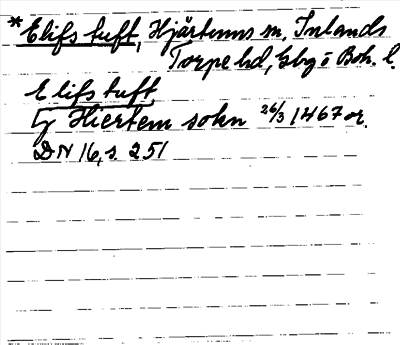 *Elifs tuft, Hjärtums sn, Inlands
Torpe hd, Gbg o Boh. l.
Elifs tuft
j Hiertem sokn 26/3 1467 or.
DN 16, s. 251